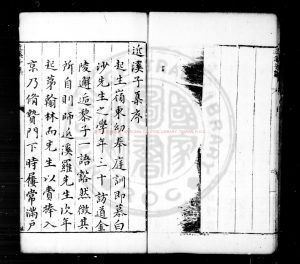 近溪子集序
起生嶺東幼奉庭訓即慕白
沙先生之學年三十訪道金
陵邂逅黎子一語豁然徴其
所自則師近溪羅先生次年
起第翰林而先生以賫捧入
京乃脩贄門下時屨常滿戶